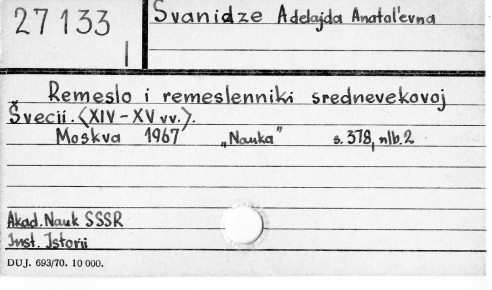 27 133
I
Svanidze Adelajda Anatol'evna
Remeslo i remeslenniki srednevekovoj
Švecii. <XIV - XV vv.>.
Moskva 1967 „Nauka" s. 378, nlb. 2
Akad. Nauk SSSR
Inst. Istorii
DUJ. 693/70. 10 000.